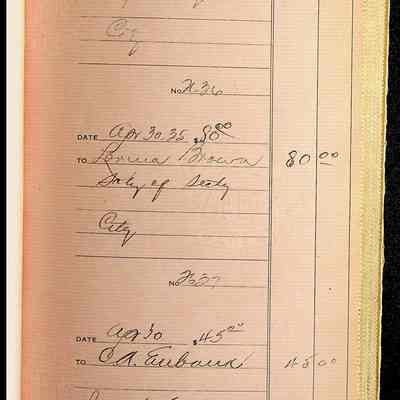 City
No 2636
DATE Apr 30, 35 $80.00
TO Lorena Brown 80 00
Salry of Secty
City
No 2637
DATE Apr 30 $45.00
TO C. A. Eubank 45 00